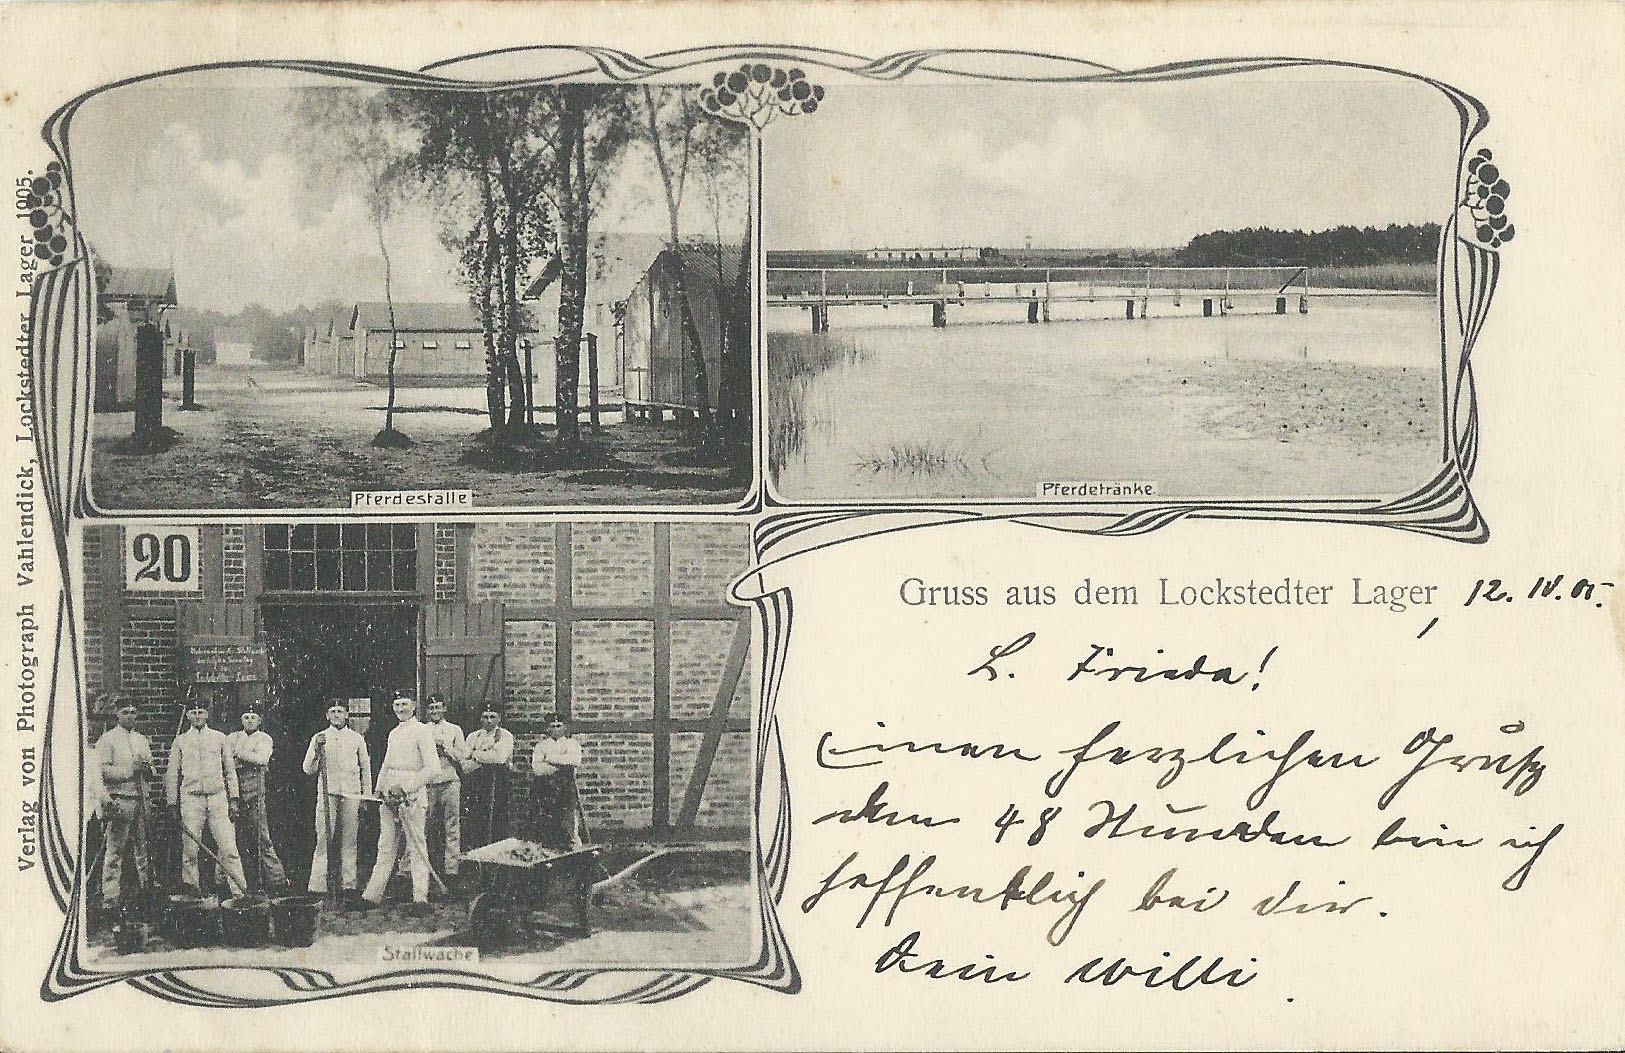 Verlag von Photograph Vahlendick, Lockstedter Lager 1905.
Pferdeställe
Pferdetränke
20
Stallwache
Gruss aus dem Lockstedter Lager, 12. IV. 05.
L. Frieda!
Einen herzlichen Gruß
48 Stunden bin ich
hoffentlich bei dir.
Dein Willi.